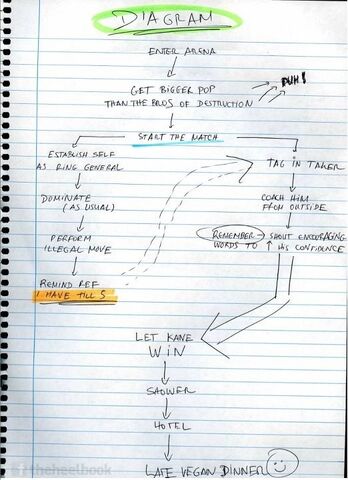 DIAGRAM
ENTER ARENA
GET BIGGER POP
THAN THE BROS OF DESTRUCTION
DUH!
START THE MATCH
ESTABLISH SELF
AS RING GENERAL
DOMINATE
(AS USUAL)
PERFORM
ILLEGAL MOVE
REMIND REF
I HAVE TILL 5
TAG IN TAKER
COACH HIM
FROM OUTSIDE
REMEMBER - SHOUT ENCOURAGING
WORDS TO ↑ HIS CONFIDENCE
LET KANE
WIN
SHOWER
HOTEL
LATE VEGAN DINNER
theheelbook